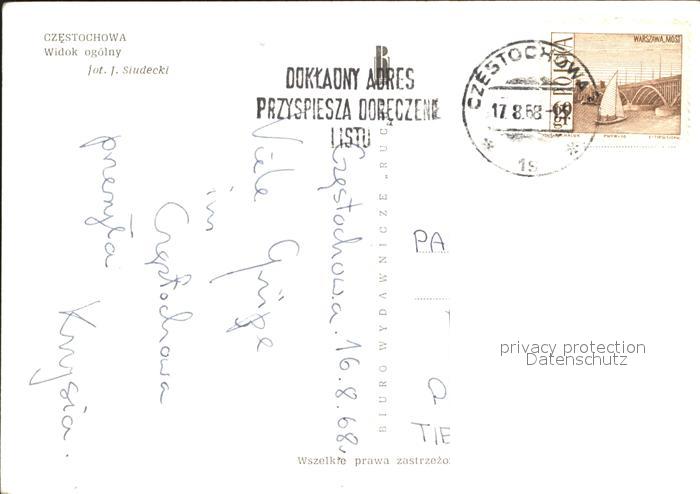 CZĘSTOCHOWA
Widok ogólny
fot. J. Siudecki
DOKŁADNY ADRES
PRZYSPIESZA DORĘCZENIE
LISTU
CZĘSTOCHOWA
17.8.68
* 1 *
WARSZAWA, MOST
POLSKA
60 GR
Częstochowa. 16.8.68r.
Viele Grüße
im
Częstochowa
przesyła
Krysia.
BIURO WYDAWNICZE „RUCH
PA
TIE
privacy protection
Datenschutz
Wszelkie prawa zastrzeżo